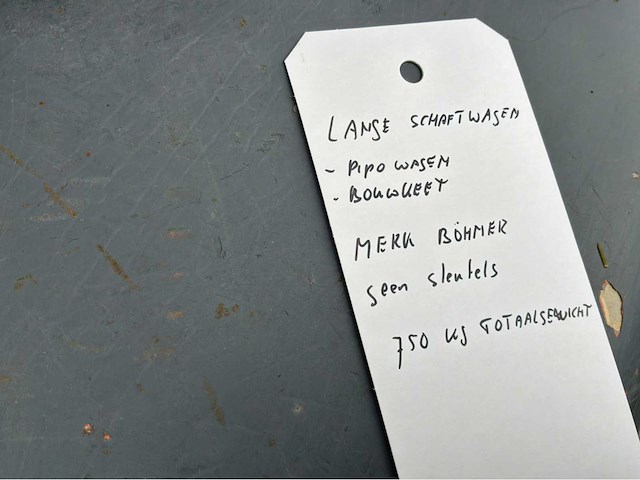 LANGE SCHAFTWAGEN
- PIPO WAGEN
- BOUWKEET
MERK BÖHMER
geen sleutels
750 KG TOTAALGEWICHT